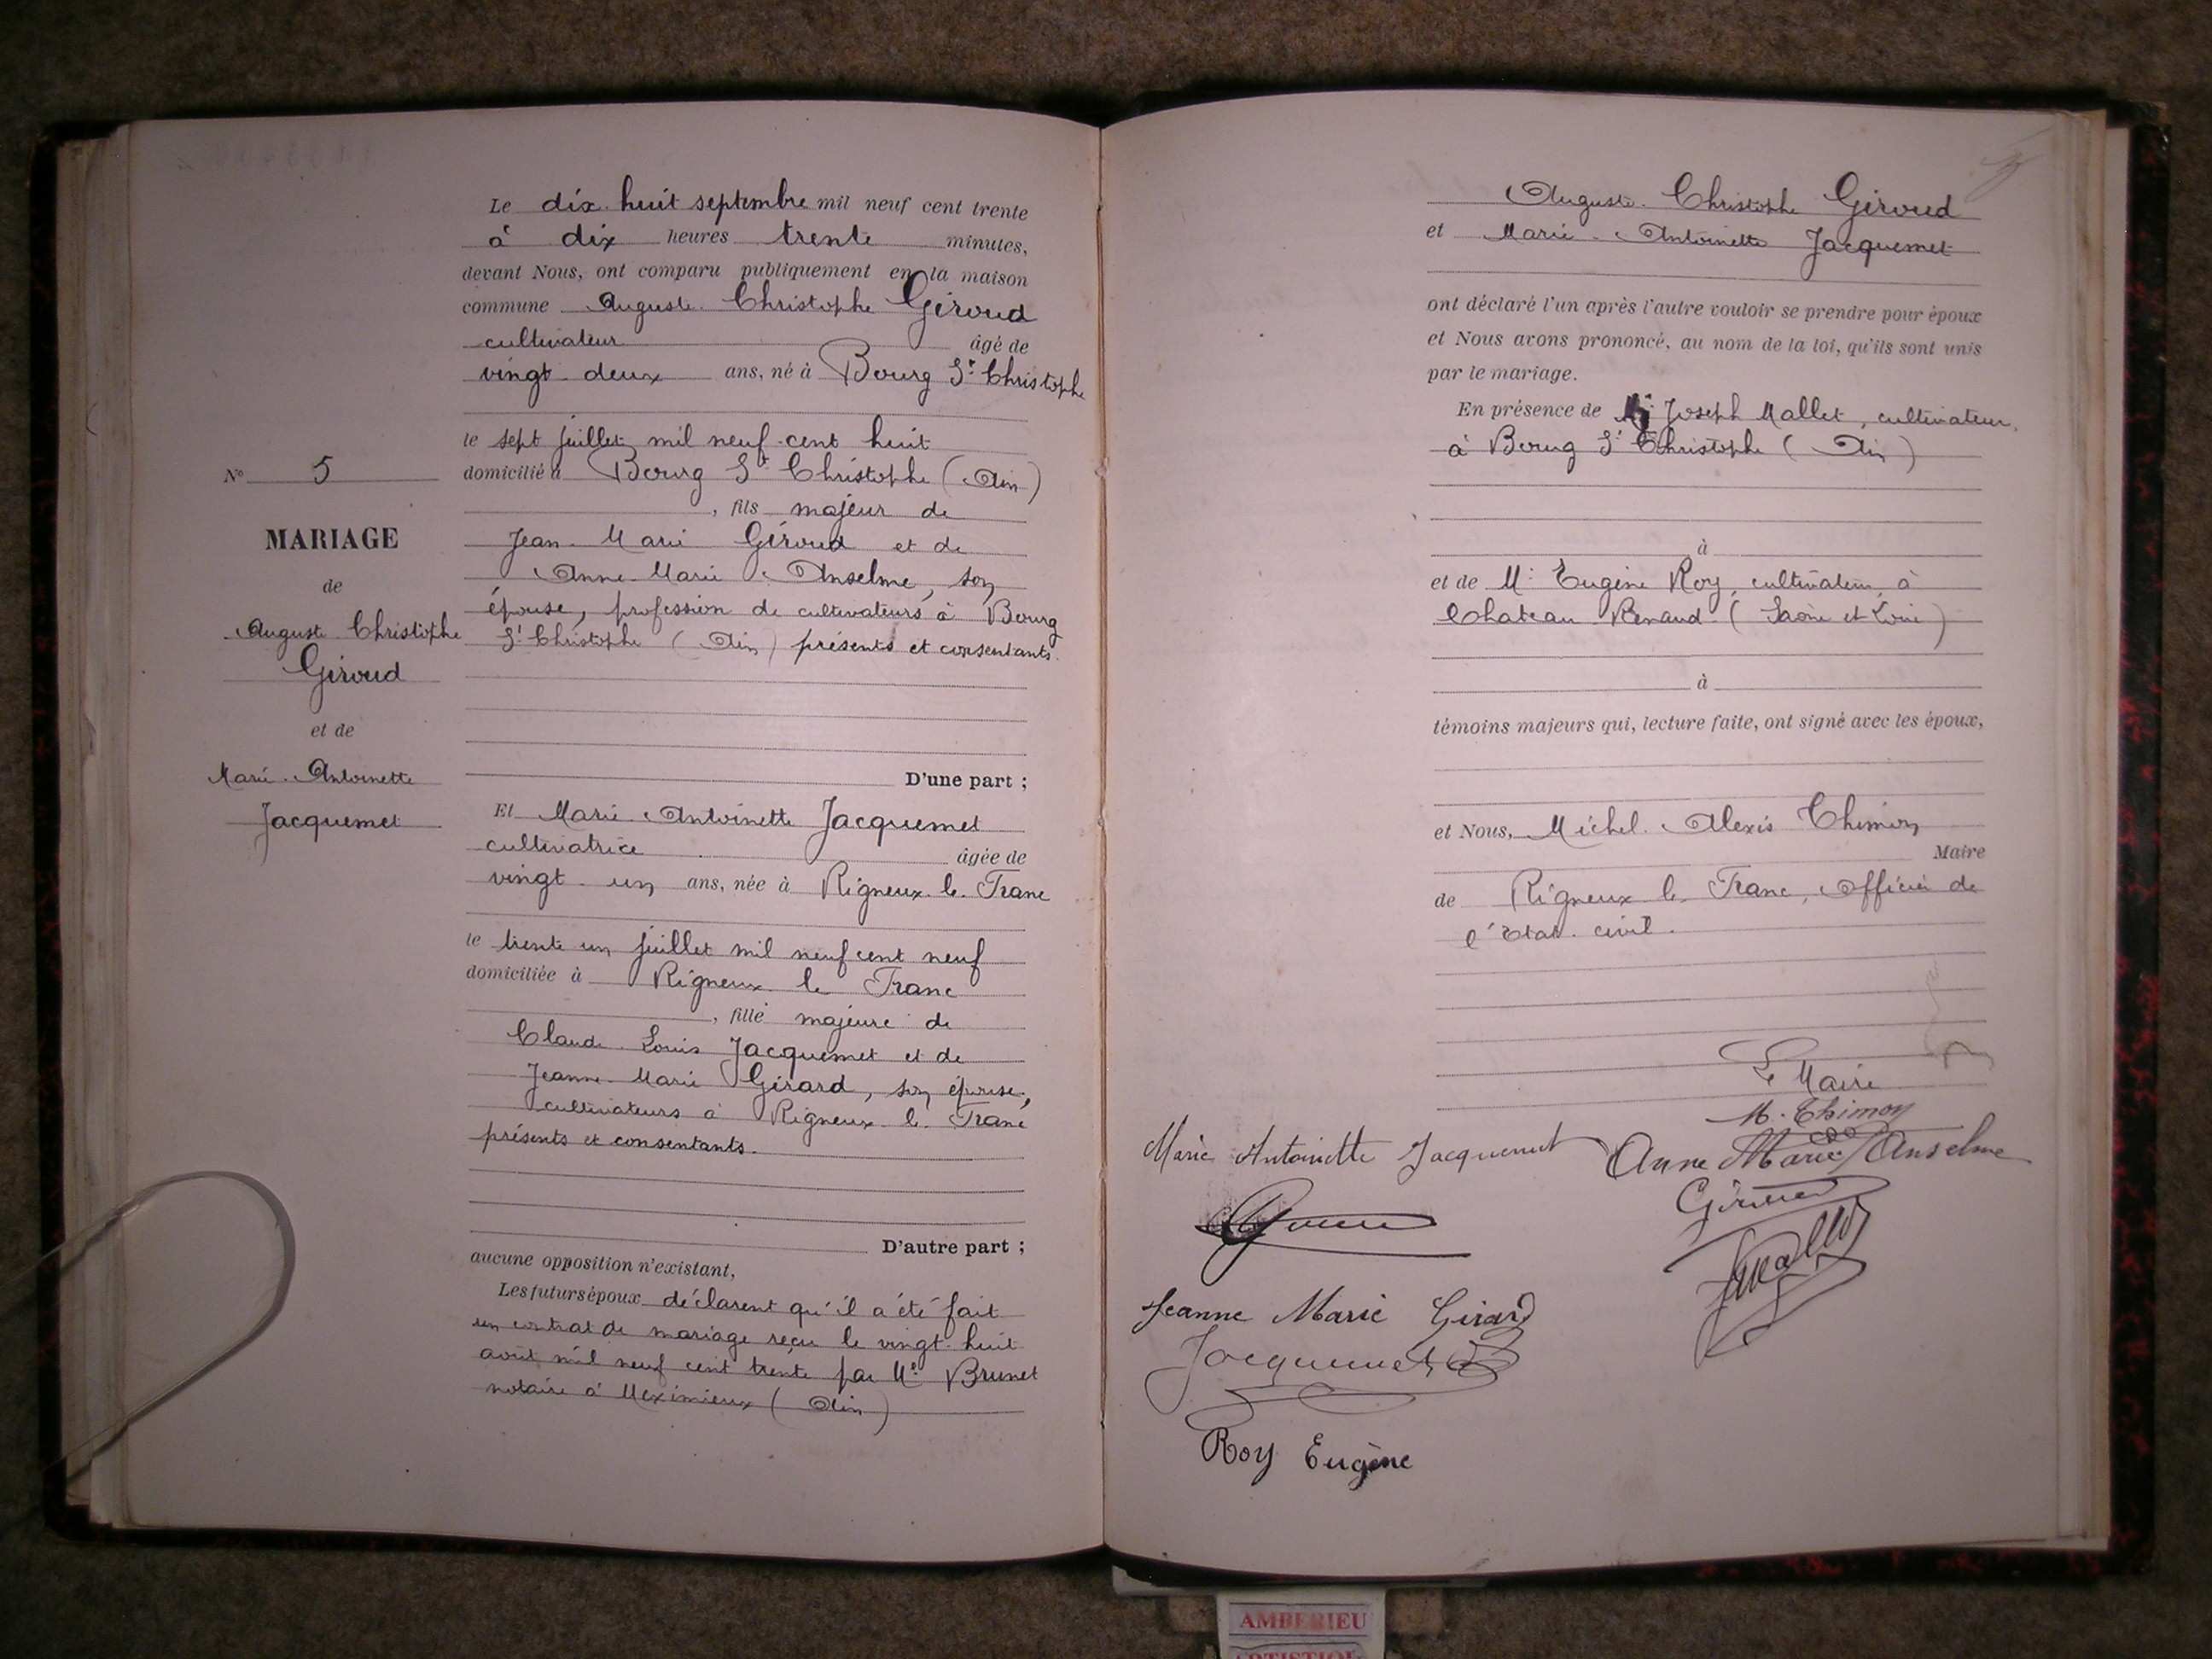 Le dix huit septembre mil neuf cent trente
à dix heures trente minutes,
devant Nous, ont comparu publiquement en la maison
commune Auguste Christophe Giroud
cultivateur âgé de
vingt deux ans, né à Bourg St Christophe
le sept juillet mil neuf cent huit
domicilié à Bourg St Christophe (Ain)
, fils majeur de
Jean Marie Giroud et de
Anne Marie Anselme, son
épouse, profession de cultivateurs à Bourg
St Christophe (Ain) présents et consentants.
D'une part ;
Et Marie Antoinette Jacquemet
cultivatrice âgée de
vingt un ans, née à Rigneux le Franc
le trente un juillet mil neuf cent neuf
domiciliée à Rigneux le Franc
, fille majeure de
Claude Louis Jacquemet et de
Jeanne Marie Girard, son épouse,
cultivateurs à Rigneux le Franc
présents et consentants.
D'autre part ;
aucune opposition n'existant,
Les futurs époux déclarent qu'il a été fait
un contrat de mariage reçu le vingt huit
août mil neuf cent trente par Me Brunet
notaire à Meximieux (Ain)
No 5
MARIAGE
de
Auguste Christophe
Giroud
et de
Marie Antoinette
Jacquemet
Auguste Christophe Giroud
et Marie Antoinette Jacquemet
ont déclaré l'un après l'autre vouloir se prendre pour époux
et Nous avons prononcé, au nom de la loi, qu'ils sont unis
par le mariage.
En présence de Mr Joseph Mallet, cultivateur,
à Bourg St Christophe (Ain)
à
et de Mr Eugène Roy, cultivateur, à
Chateau Renaud (Saône et Loire)
à
témoins majeurs qui, lecture faite, ont signé avec les époux,
et Nous, Michel Alexis Thimon
Maire
de Rigneux le Franc, officier de
l'Etat civil.
Le Maire
M. Thimon
Marie Antoinette Jacquemet
Anne Marie Anselme
Giroud
Jeanne Marie Girard
Jacquemet
Roy Eugène
AMBERIEU